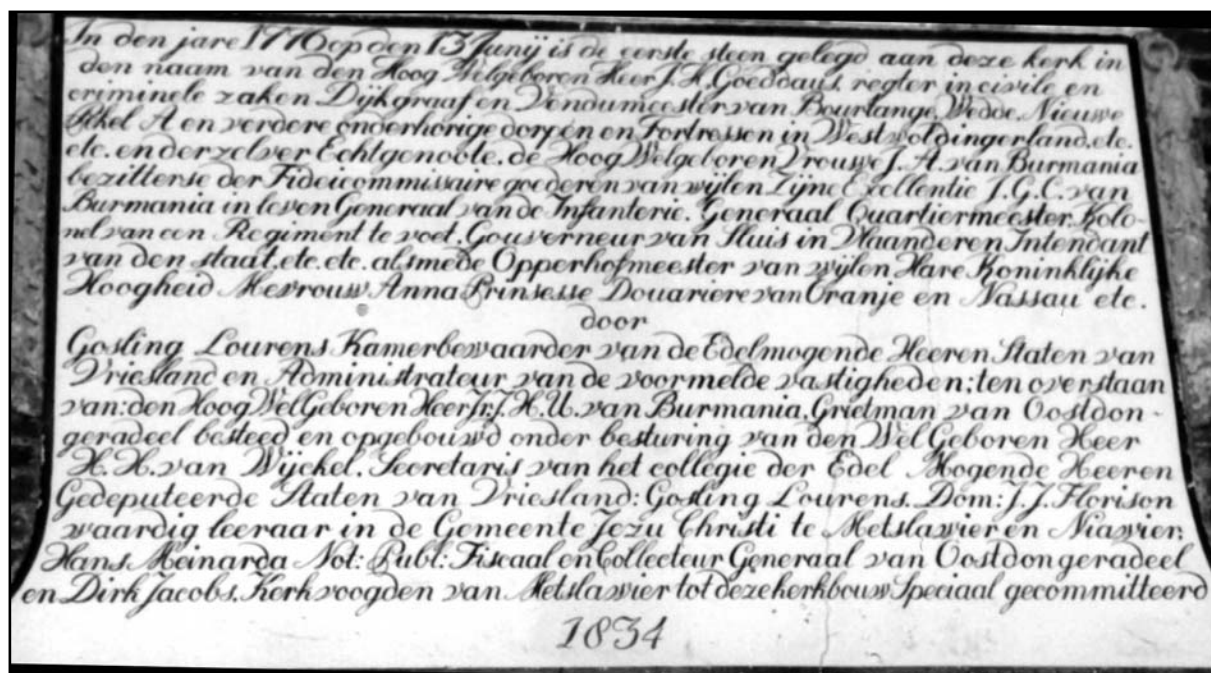 In den jare 1776 op den 13 Junij is de eerste steen gelegd aan deze kerk in
den naam van den Hoog Welgeboren Heer J. H. Goeddaus, regter in civile en
criminele zaken Dijkgraaf en Vendumeester van Bourtange, Wedde, Nieuwe
Pekel A en verdere onderhorige dorpen en Fortressen in Westwoldingerland, etc.
etc. en derzelver Echtgenoote, de Hoog Welgeboren Vrouwe J. A. van Burmania
bezitterse der Fideicommissaire goederen van wijlen Zijne Excellentie J. G. C. van
Burmania in leven Generaal van de Infanterie, Generaal Quartiermeester, Kolo-
nel van een Regiment te voet, Gouverneur van Sluis in Vlaanderen Intendant
van den staat, etc. etc. alsmede Opperhofmeester van wijlen Hare Koninklijke
Hoogheid Mevrouw Anna Prinsesse Douariere van Oranje en Nassau etc.
door
Gosling Lourens Kamerbewaarder van de Edelmogende Heeren Staten van
Vriesland en Administrateur van de voormelde vastigheden: ten overstaan
van: den Hoog WelGeboren Heer Jr. J. H. U. van Burmania, Grietman van Oostdon-
geradeel besteed en opgebouwd onder besturing van den Wel Geboren Heer
H. H. van Wijckel, Secretaris van het collegie der Edel Mogende Heeren
Gedeputeerde Staten van Vriesland: Gosling Lourens. Dom: J. J. Florison
waardig leeraar in de Gemeente Jezu Christi te Metslawier en Niawier:
Hans Meinarda Not: Publ: Fiscaal en Collecteur Generaal van Oostdongeradeel
en Dirk Jacobs, Kerkvoogden van Metslawier tot deze kerkbouw Speciaal gecommitteerd
1834